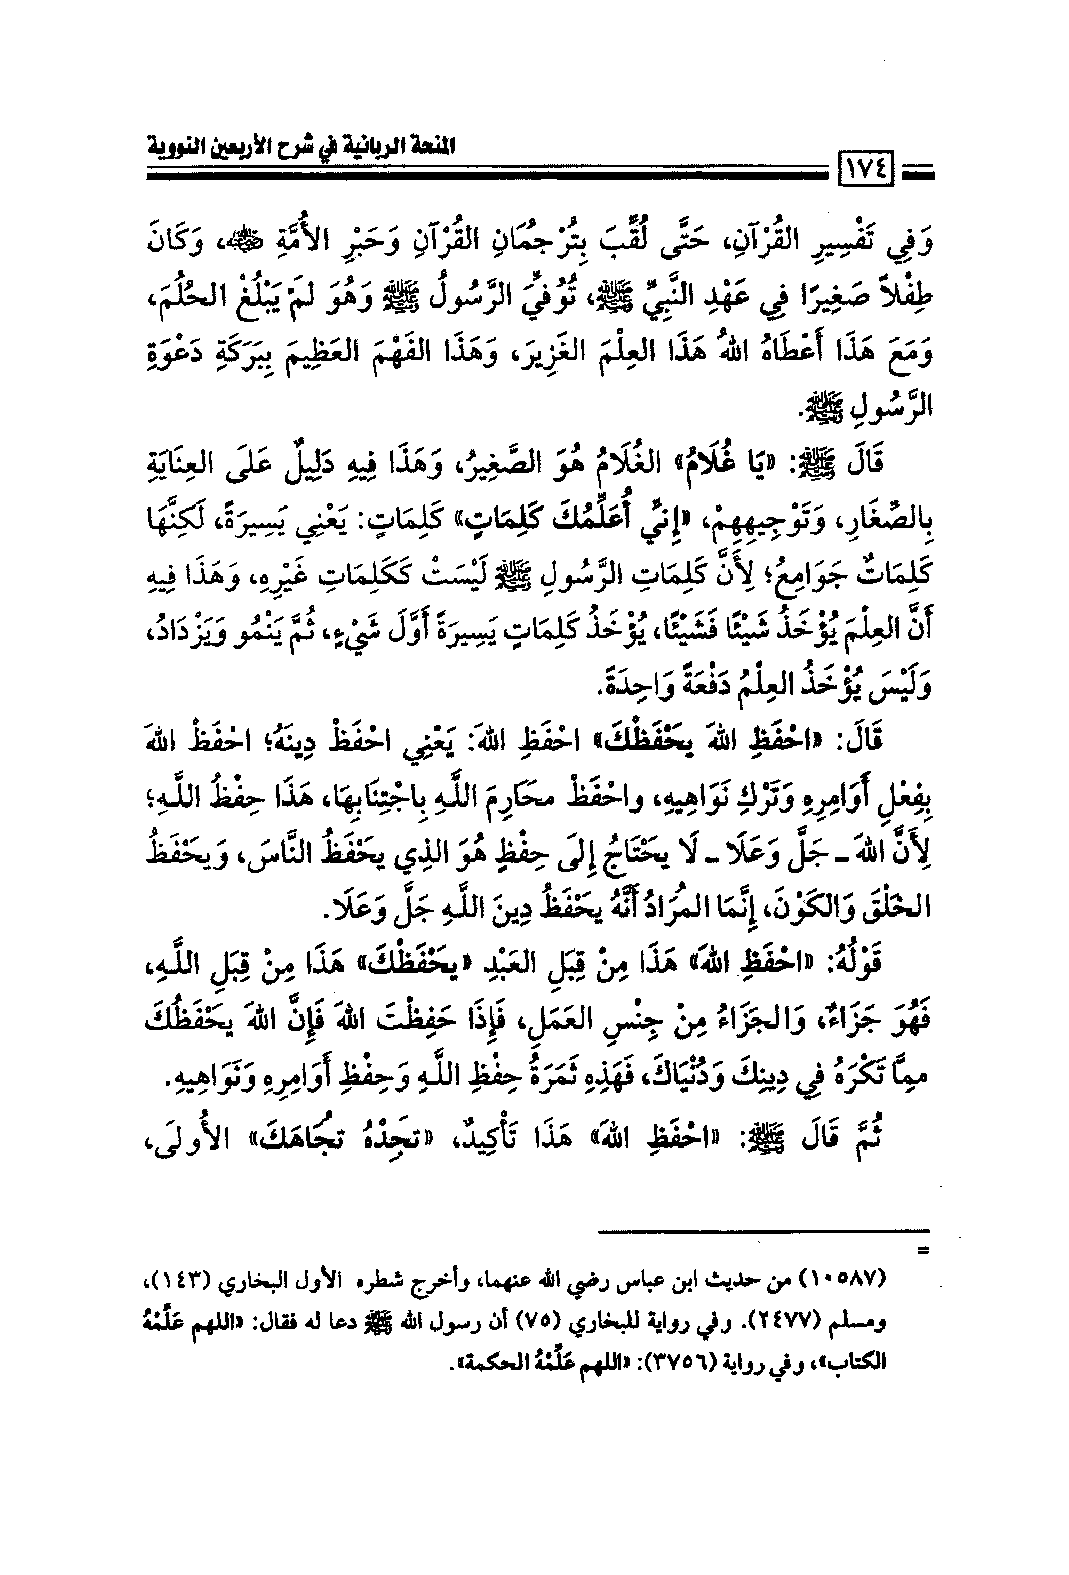 المنحة الربانية في شرح الأربعين النووية
١٧٤
وَفِي تَفْسِيرِ القُرْآنِ، حَتَّى لُقِّبَ بِتُرْجُمَانِ القُرْآنِ وَحَبْرِ الأُمَّةِ ﵁، وَكَانَ
طِفْلاً صَغِيرًا فِي عَهْدِ النَّبِيِّ ﷺ، تُوُفِّيَ الرَّسُولُ ﷺ وَهُوَ لَمْ يَبْلُغْ الحُلُمَ،
وَمَعَ هَذَا أَعْطَاهُ اللهُ هَذَا العِلْمَ الغَزِيرَ، وَهَذَا الفَهْمَ العَظِيمَ بِبَرَكَةِ دَعْوَةِ
الرَّسُولِ ﷺ.
قَالَ ﷺ: «يَا غُلَامُ» الغُلَامُ هُوَ الصَّغِيرُ، وَهَذَا فِيهِ دَلِيلٌ عَلَى العِنَايَةِ
بِالصِّغَارِ، وَتَوْجِيهِهِمْ، «إِنِّي أُعَلِّمُكَ كَلِمَاتٍ» كَلِمَاتٍ: يَعْنِي يَسِيرَةً، لَكِنَّهَا
كَلِمَاتٌ جَوَامِعُ؛ لِأَنَّ كَلِمَاتِ الرَّسُولِ ﷺ لَيْسَتْ كَكَلِمَاتِ غَيْرِهِ، وَهَذَا فِيهِ
أَنَّ العِلْمَ يُؤْخَذُ شَيْئًا فَشَيْئًا، يُؤْخَذُ كَلِمَاتٍ يَسِيرَةً أَوَّلَ شَيْءٍ، ثُمَّ يَنْمُو وَيَزْدَادُ،
وَلَيْسَ يُؤْخَذُ العِلْمُ دَفْعَةً وَاحِدَةً.
قَالَ: «احْفَظِ اللهَ يَحْفَظْكَ» احْفَظِ اللهَ: يَعْنِي احْفَظْ دِينَهُ؛ احْفَظْ اللهَ
بِفِعْلِ أَوَامِرِهِ وَتَرْكِ نَوَاهِيهِ، واحْفَظْ محَارِمَ اللَّهِ بِاجْتِنَابِهَا، هَذَا حِفْظُ اللَّهِ؛
لِأَنَّ اللهَ ـ جَلَّ وَعَلَا ـ لَا يَحْتَاجُ إِلَى حِفْظٍ هُوَ الذِي يحْفَظُ النَّاسَ، وَيحْفَظُ
الخَلْقَ وَالكَوْنَ، إِنَّمَا المُرَادُ أَنَّهُ يحْفَظُ دِينَ اللَّهِ جَلَّ وَعَلَا.
قَوْلُهُ: «احْفَظِ اللهَ» هَذَا مِنْ قِبَلِ العَبْدِ «يحْفَظْكَ» هَذَا مِنْ قِبَلِ اللَّهِ،
فَهُوَ جَزَاءٌ، وَالجَزَاءُ مِنْ جِنْسِ العَمَلِ، فَإِذَا حَفِظْتَ اللهَ فَإِنَّ اللهَ يحْفَظُكَ
ممِّا تَكْرَهُ فِي دِينِكَ وَدُنْيَاكَ، فَهَذِهِ ثَمَرَةُ حِفْظِ اللَّهِ وَحِفْظِ أَوَامِرِهِ وَنَوَاهِيهِ.
ثُمَّ قَالَ ﷺ: «احْفَظِ اللهَ» هَذَا تَأْكِيدٌ، «تجِدْهُ تجُاهَكَ» الأُولَى،
=
(١٠٥٨٧) من حديث ابن عباس رضي الله عنهما، وأخرج شطره الأول البخاري (١٤٣)،
ومسلم (٢٤٧٧). وفي رواية للبخاري (٧٥) أن رسول الله ﷺ دعا له فقال: «اللهم عَلِّمْهُ
الكتاب»، وفي رواية (٣٧٥٦): «اللهم عَلِّمْهُ الحكمة».